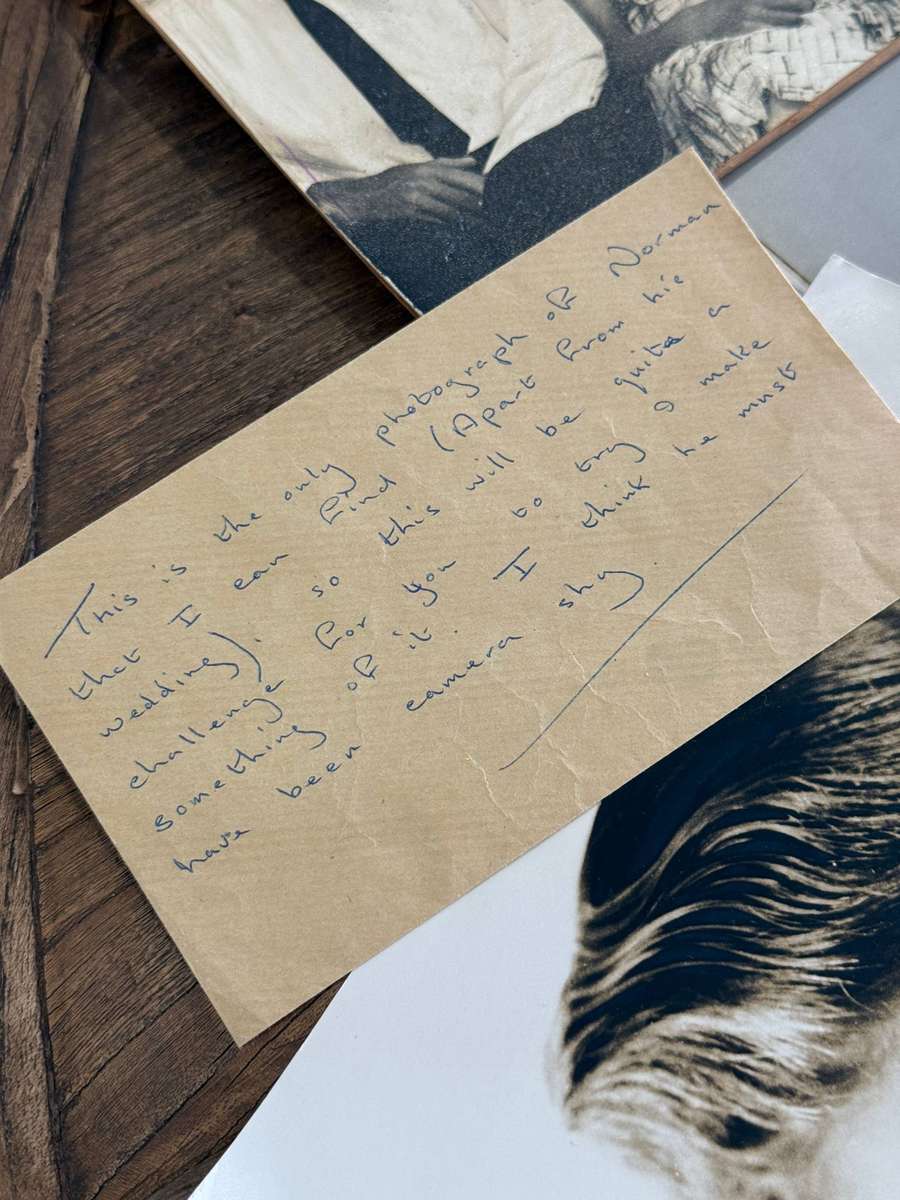 This is the only photograph of Norman
that I can find (Apart from his
wedding). so this will be quite a
challenge for you to try & make
something of it. I think he must
have been camera shy